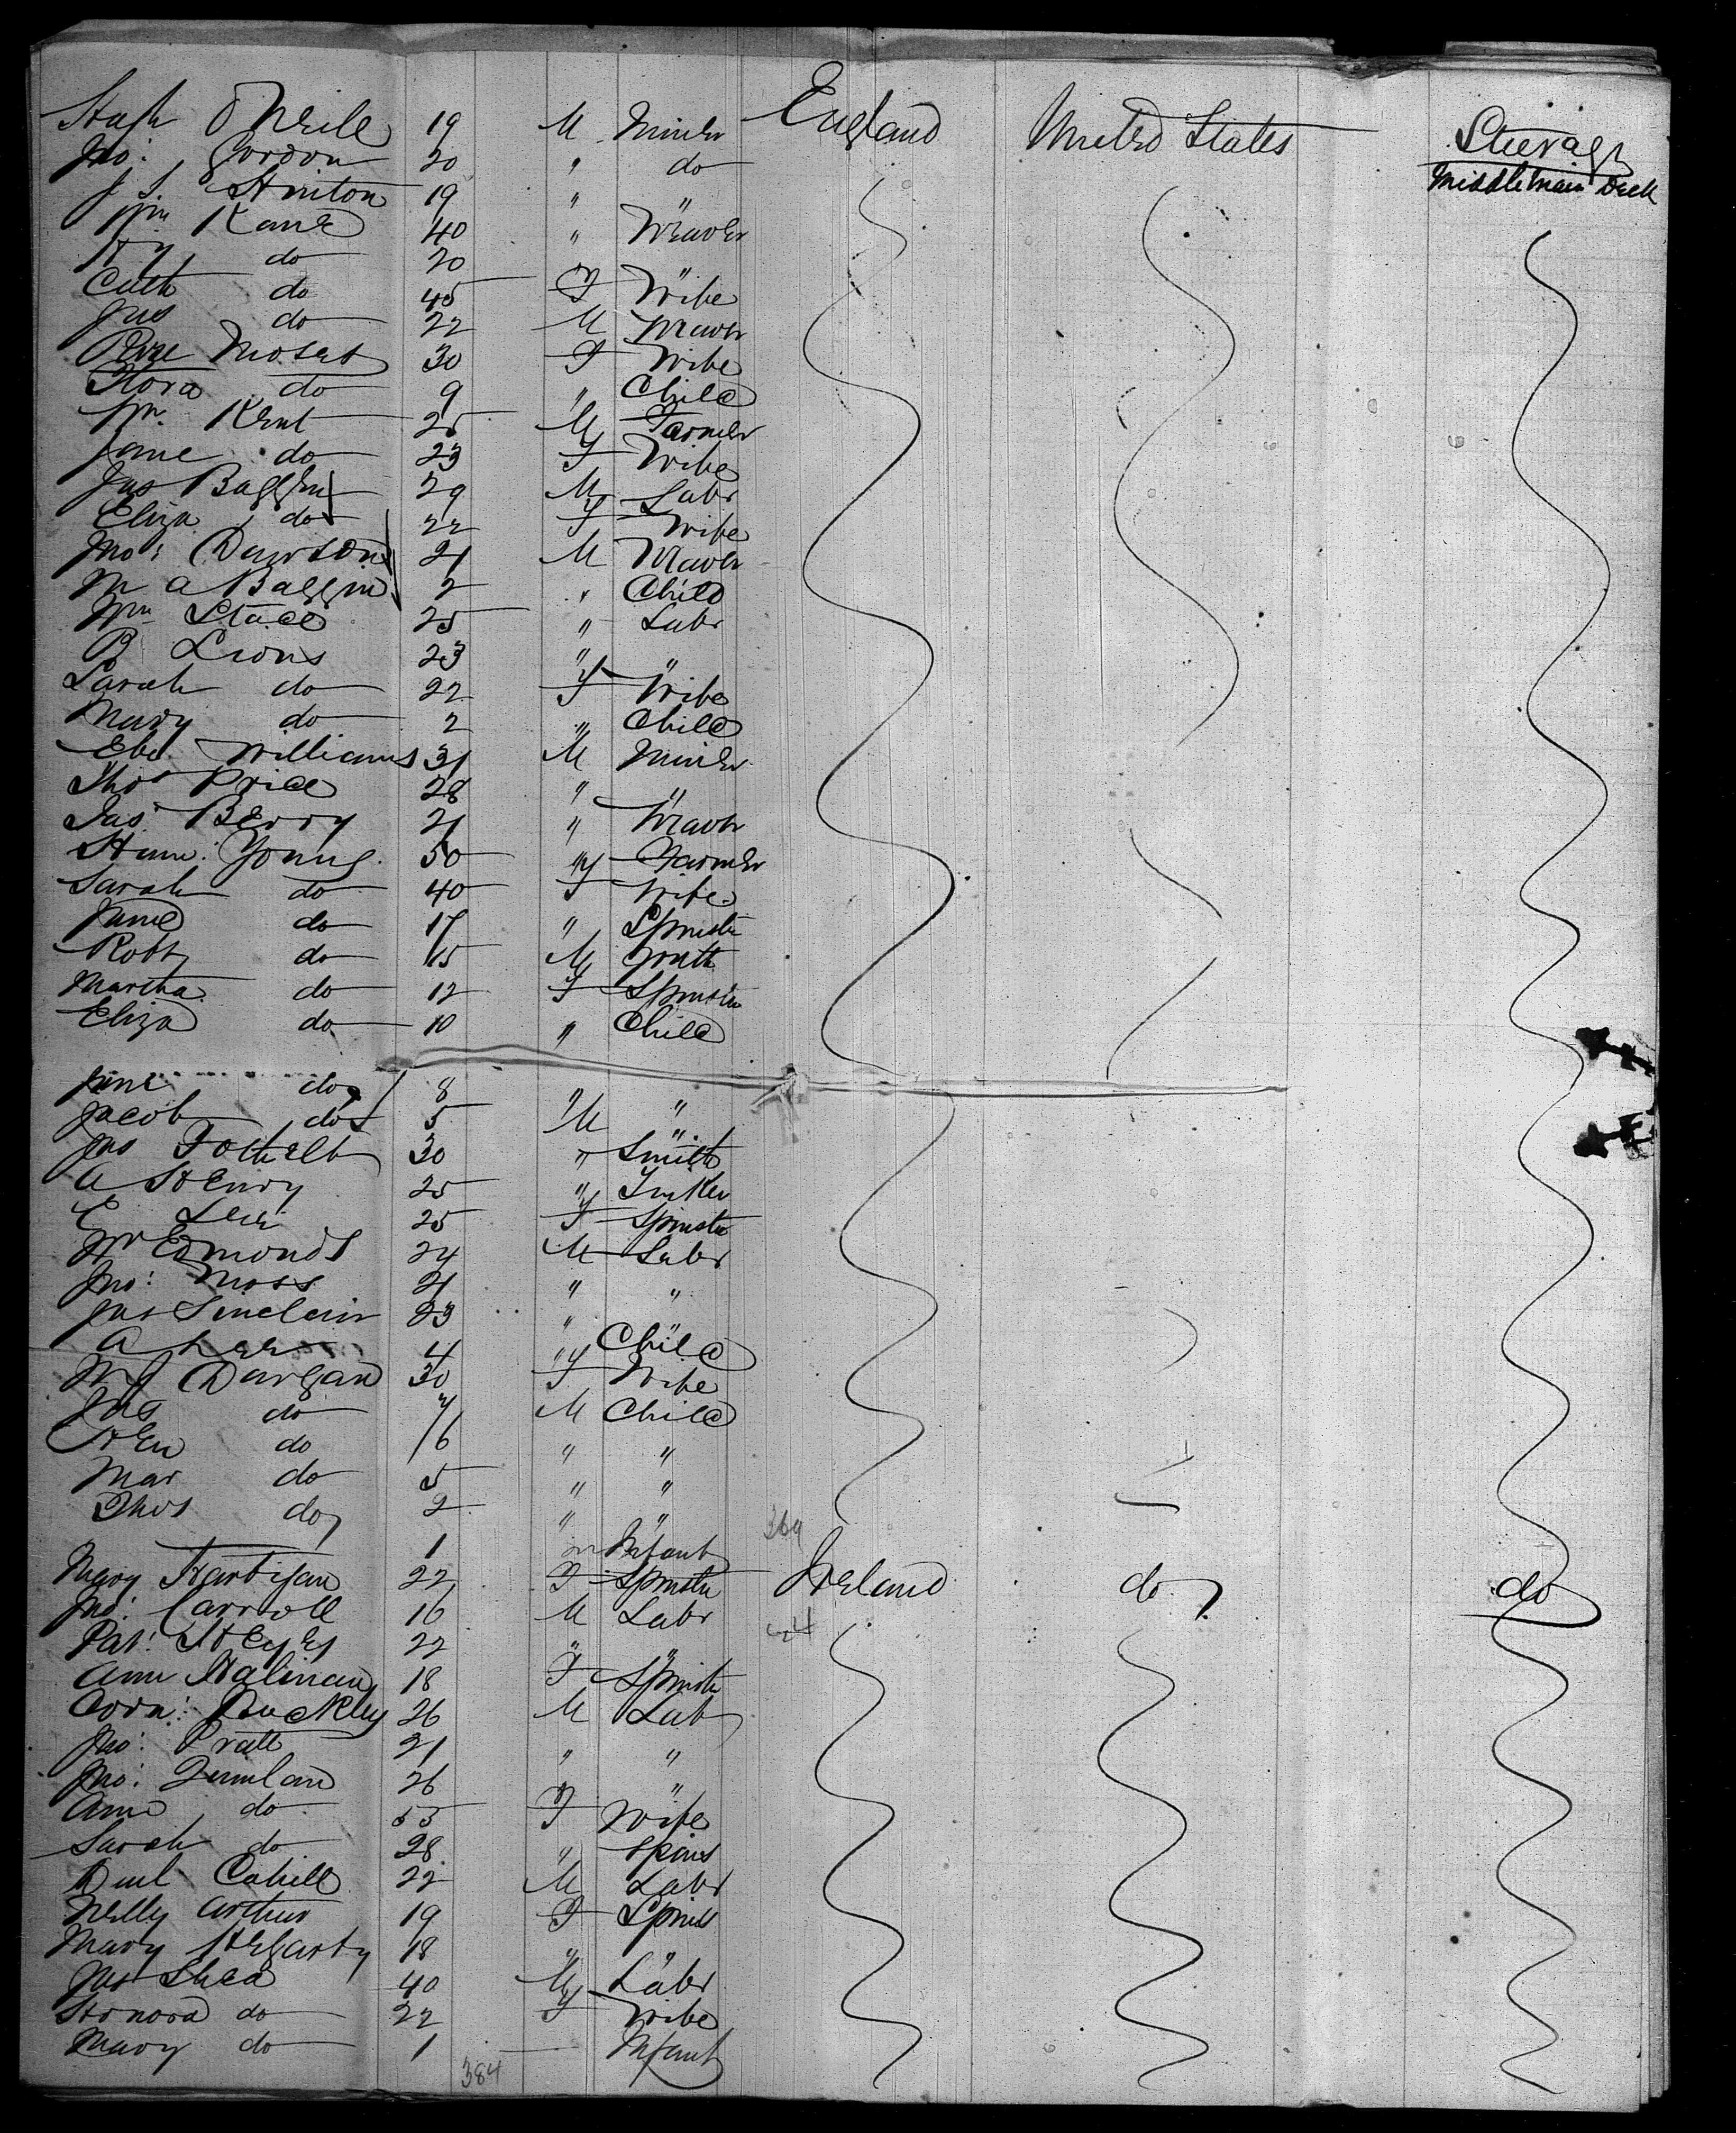 Hugh O'Neile 19 M Miner England United States Steerage
Jno: Gordon 20 " do Middle Main Deck
J. S. Hinton 19 " "
Wm Kane 40 " Weaver
Hy do 20 "
Cath do 45 F Wife
Jas do 22 M Weavr
Rose 30 F Wife
Flora do 9 " Child
Wm Kent 25 M Farmer
Jane do 23 F Wife
Jas Baggin 29 M Labr
Eliza do 22 F Wife
Jno: Dawson 21 M Weavr
M a Baggin 2 " Child
Wm Stace 25 " Labr
B Lions 23 " "
Sarah do 22 F Wife
Mary do 2 " Child
Eben Williams 31 M Miner
Thos Price 28 " "
Jas Berry 21 " Weavr
Young 50 " Farmer
Sarah do 40 F Wife
do 17 " Spinstr
Robt do 15 M Youth
Martha do 12 F Spinster
Eliza do 10 " Child
Jane do 8 " "
Jacob do 5 M "
Jas 30 " Smith
A Henry 25 "
E 25 F Spinstr
Wm Edmonds 24 M Labr
Jno: Moss 21 " "
Jas Sinclair 23 " "
A Lee 4 " Child
M J Durgan 30 F Wife
Jas do 7 M Child
Hen do 6 " "
Mar do 5 " "
Thos do 2 " "
1 Infant 369
Mary Hartigan 22 F Spinstr Ireland do do
Jno: Carroll 16 M Labr
Pat: 22 " "
Ann Halinan 18 F Spinstr
Corn: Buckley 26 M Lab
Jno: Pratt 21 " "
Jno: Quinlan 26 " "
Ann do 55 F Wife
Sarah do 28 " Spins
Danl Cahill 22 M Labr
Nelly Arthur 19 F Spins
Mary Hegarty 18 " "
Jas Shea 40 M Labr
Honora do 22 F Wife
Mary do 1 Infant
384